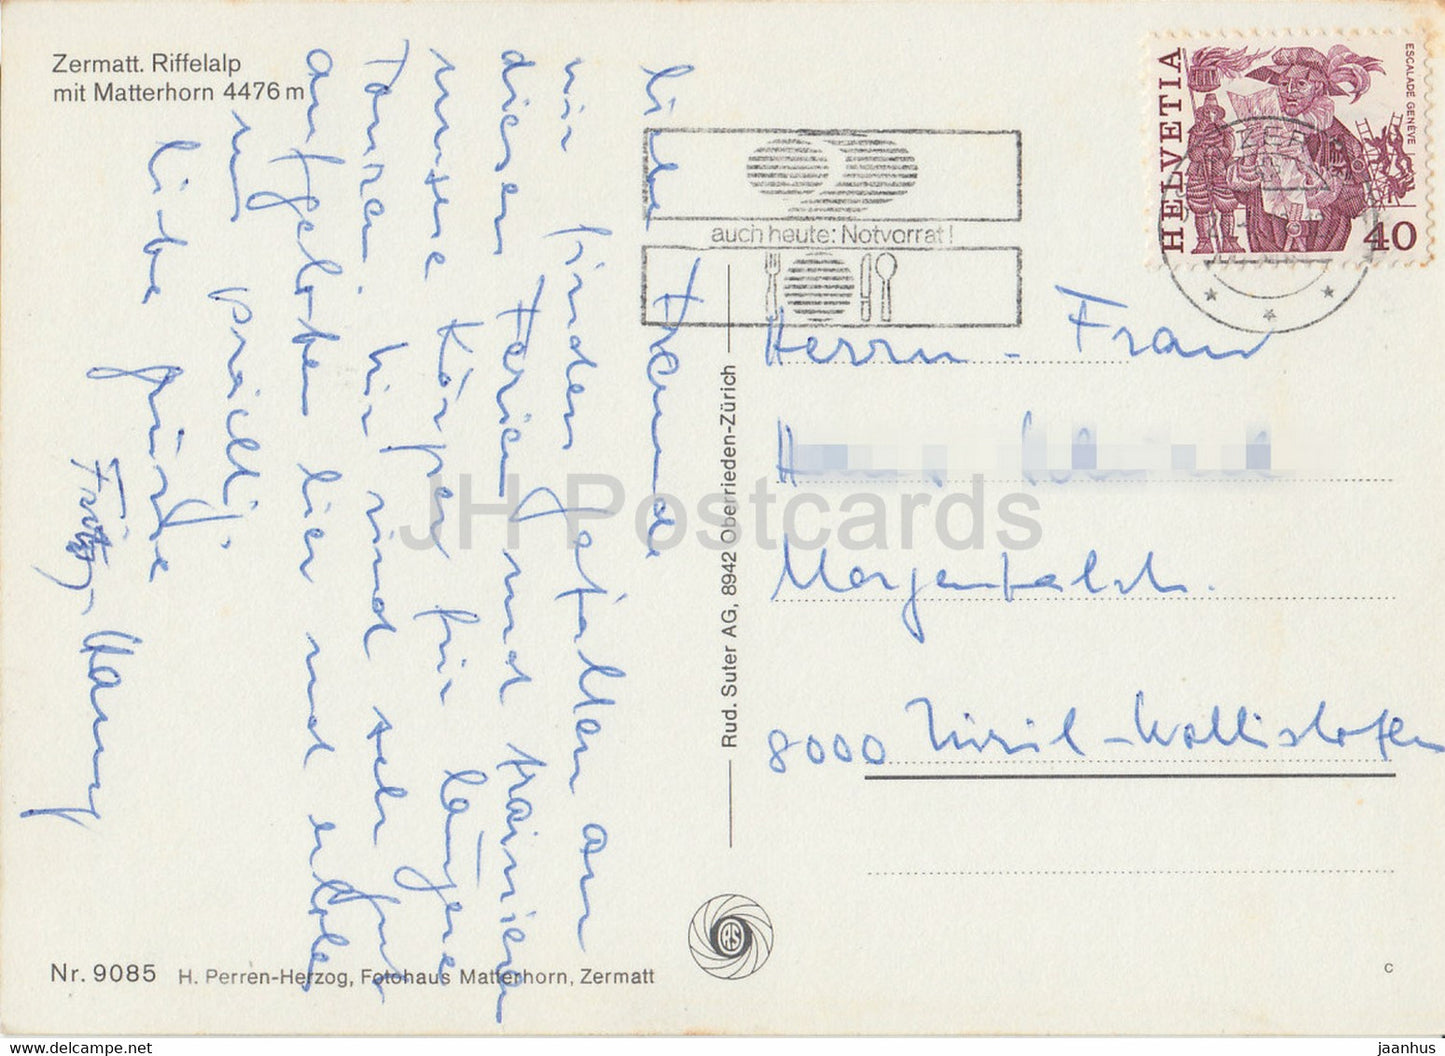 Zermatt. Riffelalp
mit Matterhorn 4476 m
HELVETIA
ESCALADE GENÈVE
40
auch heute: Notvorrat!
liebe Freunde
wir finden Gefallen an
diesen Ferien und trainieren
unsere Körper für längere
Touren. Wir sind sehr gut
aufgehoben hier und
prächtig.
liebe Grüsse
Hanny
Herrn - Frau
8000 Zürich-Wollishofen
Rud. Suter AG, 8942 Oberrieden-Zürich
RS
Nr. 9085 H. Perren-Herzog, Fotohaus Matterhorn, Zermatt
c
JH Postcards
www.delcampe.net
jaanhus